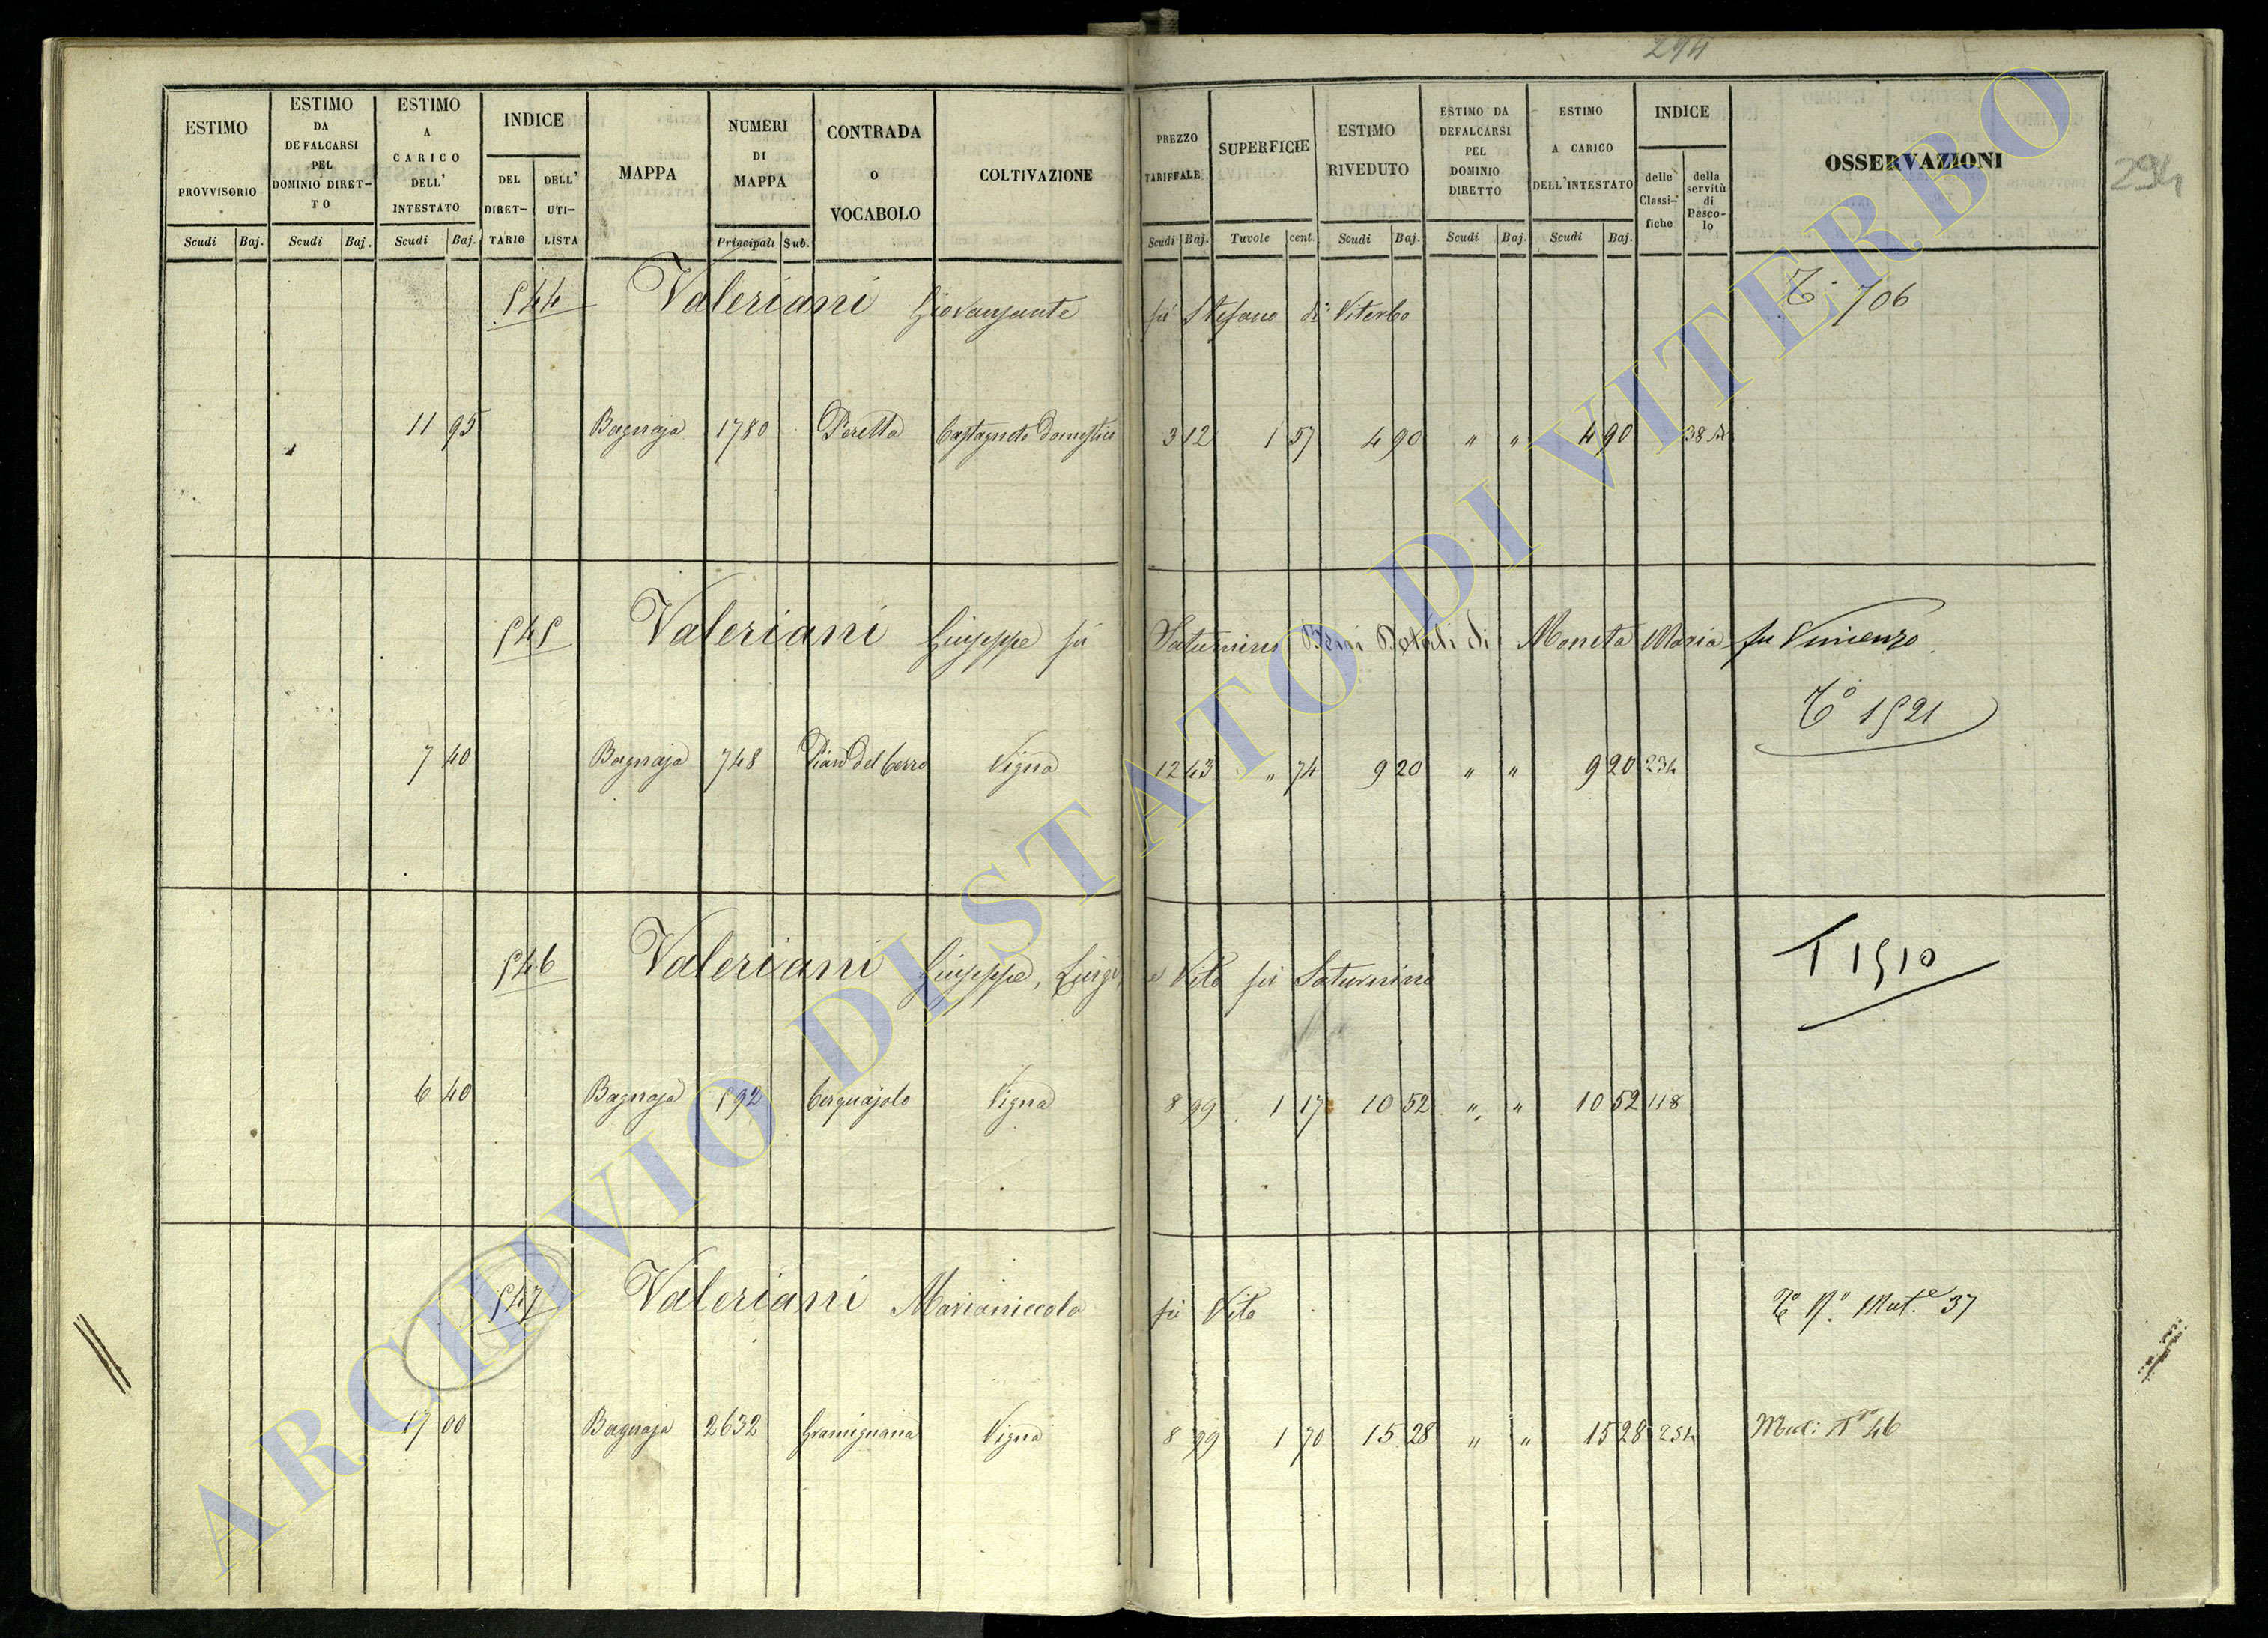 294
294
ESTIMO PROVVISORIO
ESTIMO DA DEFALCARSI PEL DOMINIO DIRET-TO
ESTIMO A CARICO DELL' INTESTATO
INDICE
DEL DIRET-TARIO
DELL' UTI-LISTA
MAPPA
NUMERI DI MAPPA
CONTRADA O VOCABOLO
COLTIVAZIONE
PREZZO TARIFFALE
SUPERFICIE
ESTIMO RIVEDUTO
ESTIMO DA DEFALCARSI PEL DOMINIO DIRETTO
ESTIMO A CARICO DELL'INTESTATO
INDICE
delle Classi-fiche
della servitù di Pasco-lo
OSSERVAZIONI
Scudi Baj. Scudi Baj. Scudi Baj. Principali Sub. Scudi Baj. Tavole cent. Scudi Baj. Scudi Baj. Scudi Baj.
544 Valeriani Giovansante fù Stefano di Viterbo T. 706
11 95 Bagnaja 1780 Peretta Castagneto domestico 3 12 1 57 4 90 " " 4 90 38
545 Valeriani Giuseppe fù Saturnino Beni Dotali di Moneta Maria fu Vincenzo
T.o 1521
7 40 Bagnaja 748 Pian del Cerro Vigna 12 43 " 74 9 20 " " 9 20 234
546 Valeriani Giuseppe, Luigi, e Vito fù Saturnino T 1510
6 40 Bagnaja 592 Cerquajolo Vigna 8 99 1 17 10 52 " " 10 52 118
547 Valeriani Marianiccola fù Vito T.o N.o Mut.e 37
17 00 Bagnaja 2632 Gramignana Vigna 8 99 1 70 15 28 " " 15 28 254 46
ARCHIVIO DI STATO DI VITERBO